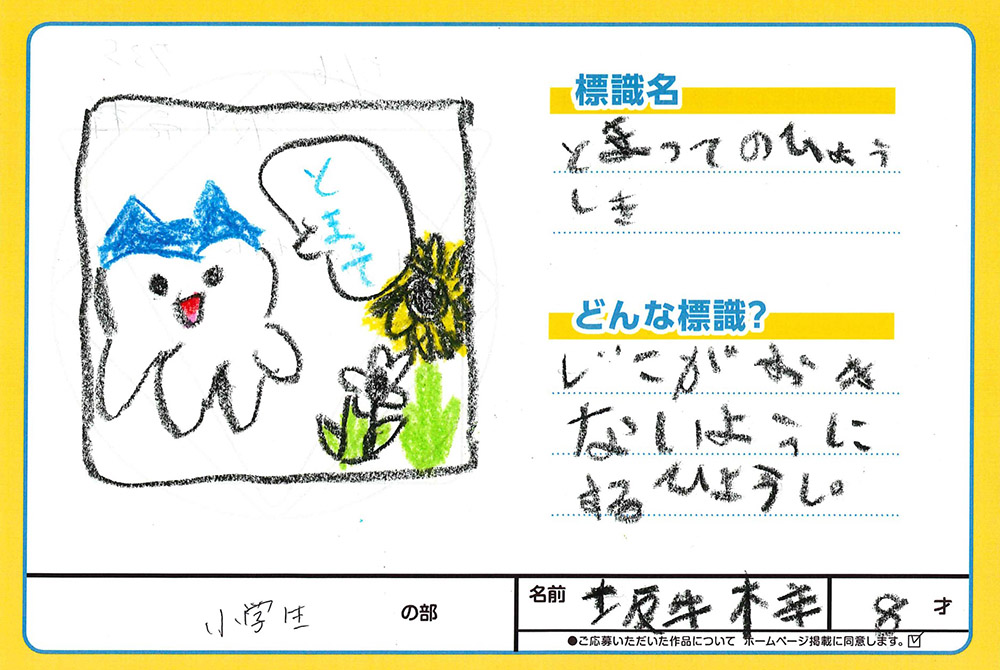 とまって
標識名
とまってのひょう
しき
どんな標識?
じこがおき
ないように
するひょうし。
小学生 の部
名前 坂牛 8 才
●ご応募いただいた作品について ホームページ掲載に同意します。☑